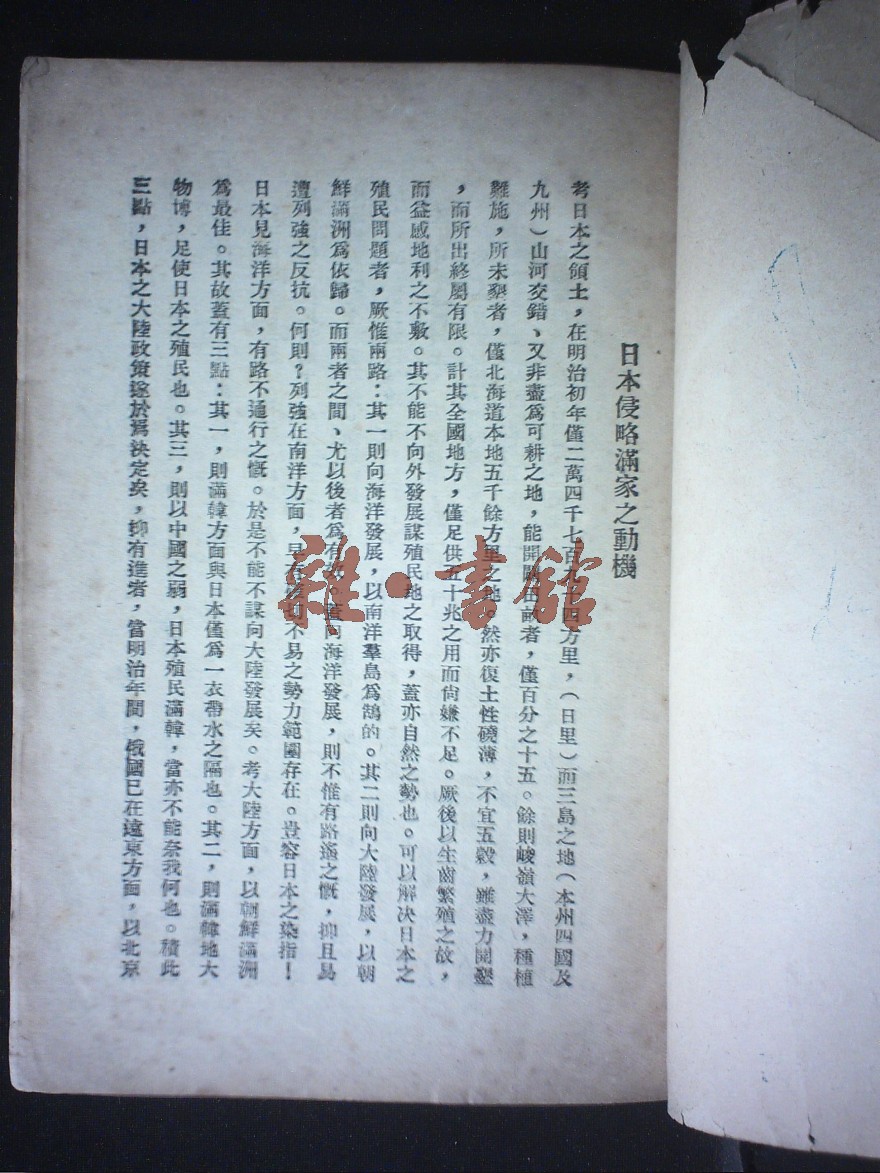 日本侵略滿家之動機
考日本之領土，在明治初年僅二萬四千七百九十四方里，（日里）而三島之地（本州四國及
九州）山河交錯、又非盡爲可耕之地，能開闢田畝者，僅百分之十五。餘則峻嶺大澤，種植
難施，所未墾者，僅北海道本地五千餘方里之地。然亦復土性磽薄，不宜五穀，雖盡力開墾
，而所出終屬有限。計其全國地方，僅足供五十兆之用而尙嫌不足。厥後以生齒繁殖之故，
而益感地利之不敷。其不能不向外發展謀殖民地之取得，蓋亦自然之勢也。可以解決日本之
殖民問題者，厥惟兩路：其一則向海洋發展，以南洋羣島爲鵠的。其二則向大陸發展，以朝
鮮滿洲爲依歸。而兩者之間、尤以後者爲有 。蓋向海洋發展，則不惟有路遙之慨，抑且易
遭列強之反抗。何則？列強在南洋方面，早有 不易之勢力範圍存在。豈容日本之染指！
日本見海洋方面，有路不通行之慨。於是不能不謀向大陸發展矣。考大陸方面，以朝鮮滿洲
爲最佳。其故蓋有三點：其一，則滿韓方面與日本僅爲一衣帶水之隔也。其二，則滿韓地大
物博，足使日本之殖民也。其三，則以中國之弱，日本殖民滿韓，當亦不能奈我何也。積此
三點，日本之大陸政策遂於焉決定矣，抑有進者，當明治年間，俄國已在遠東方面，以北京
雜·書館